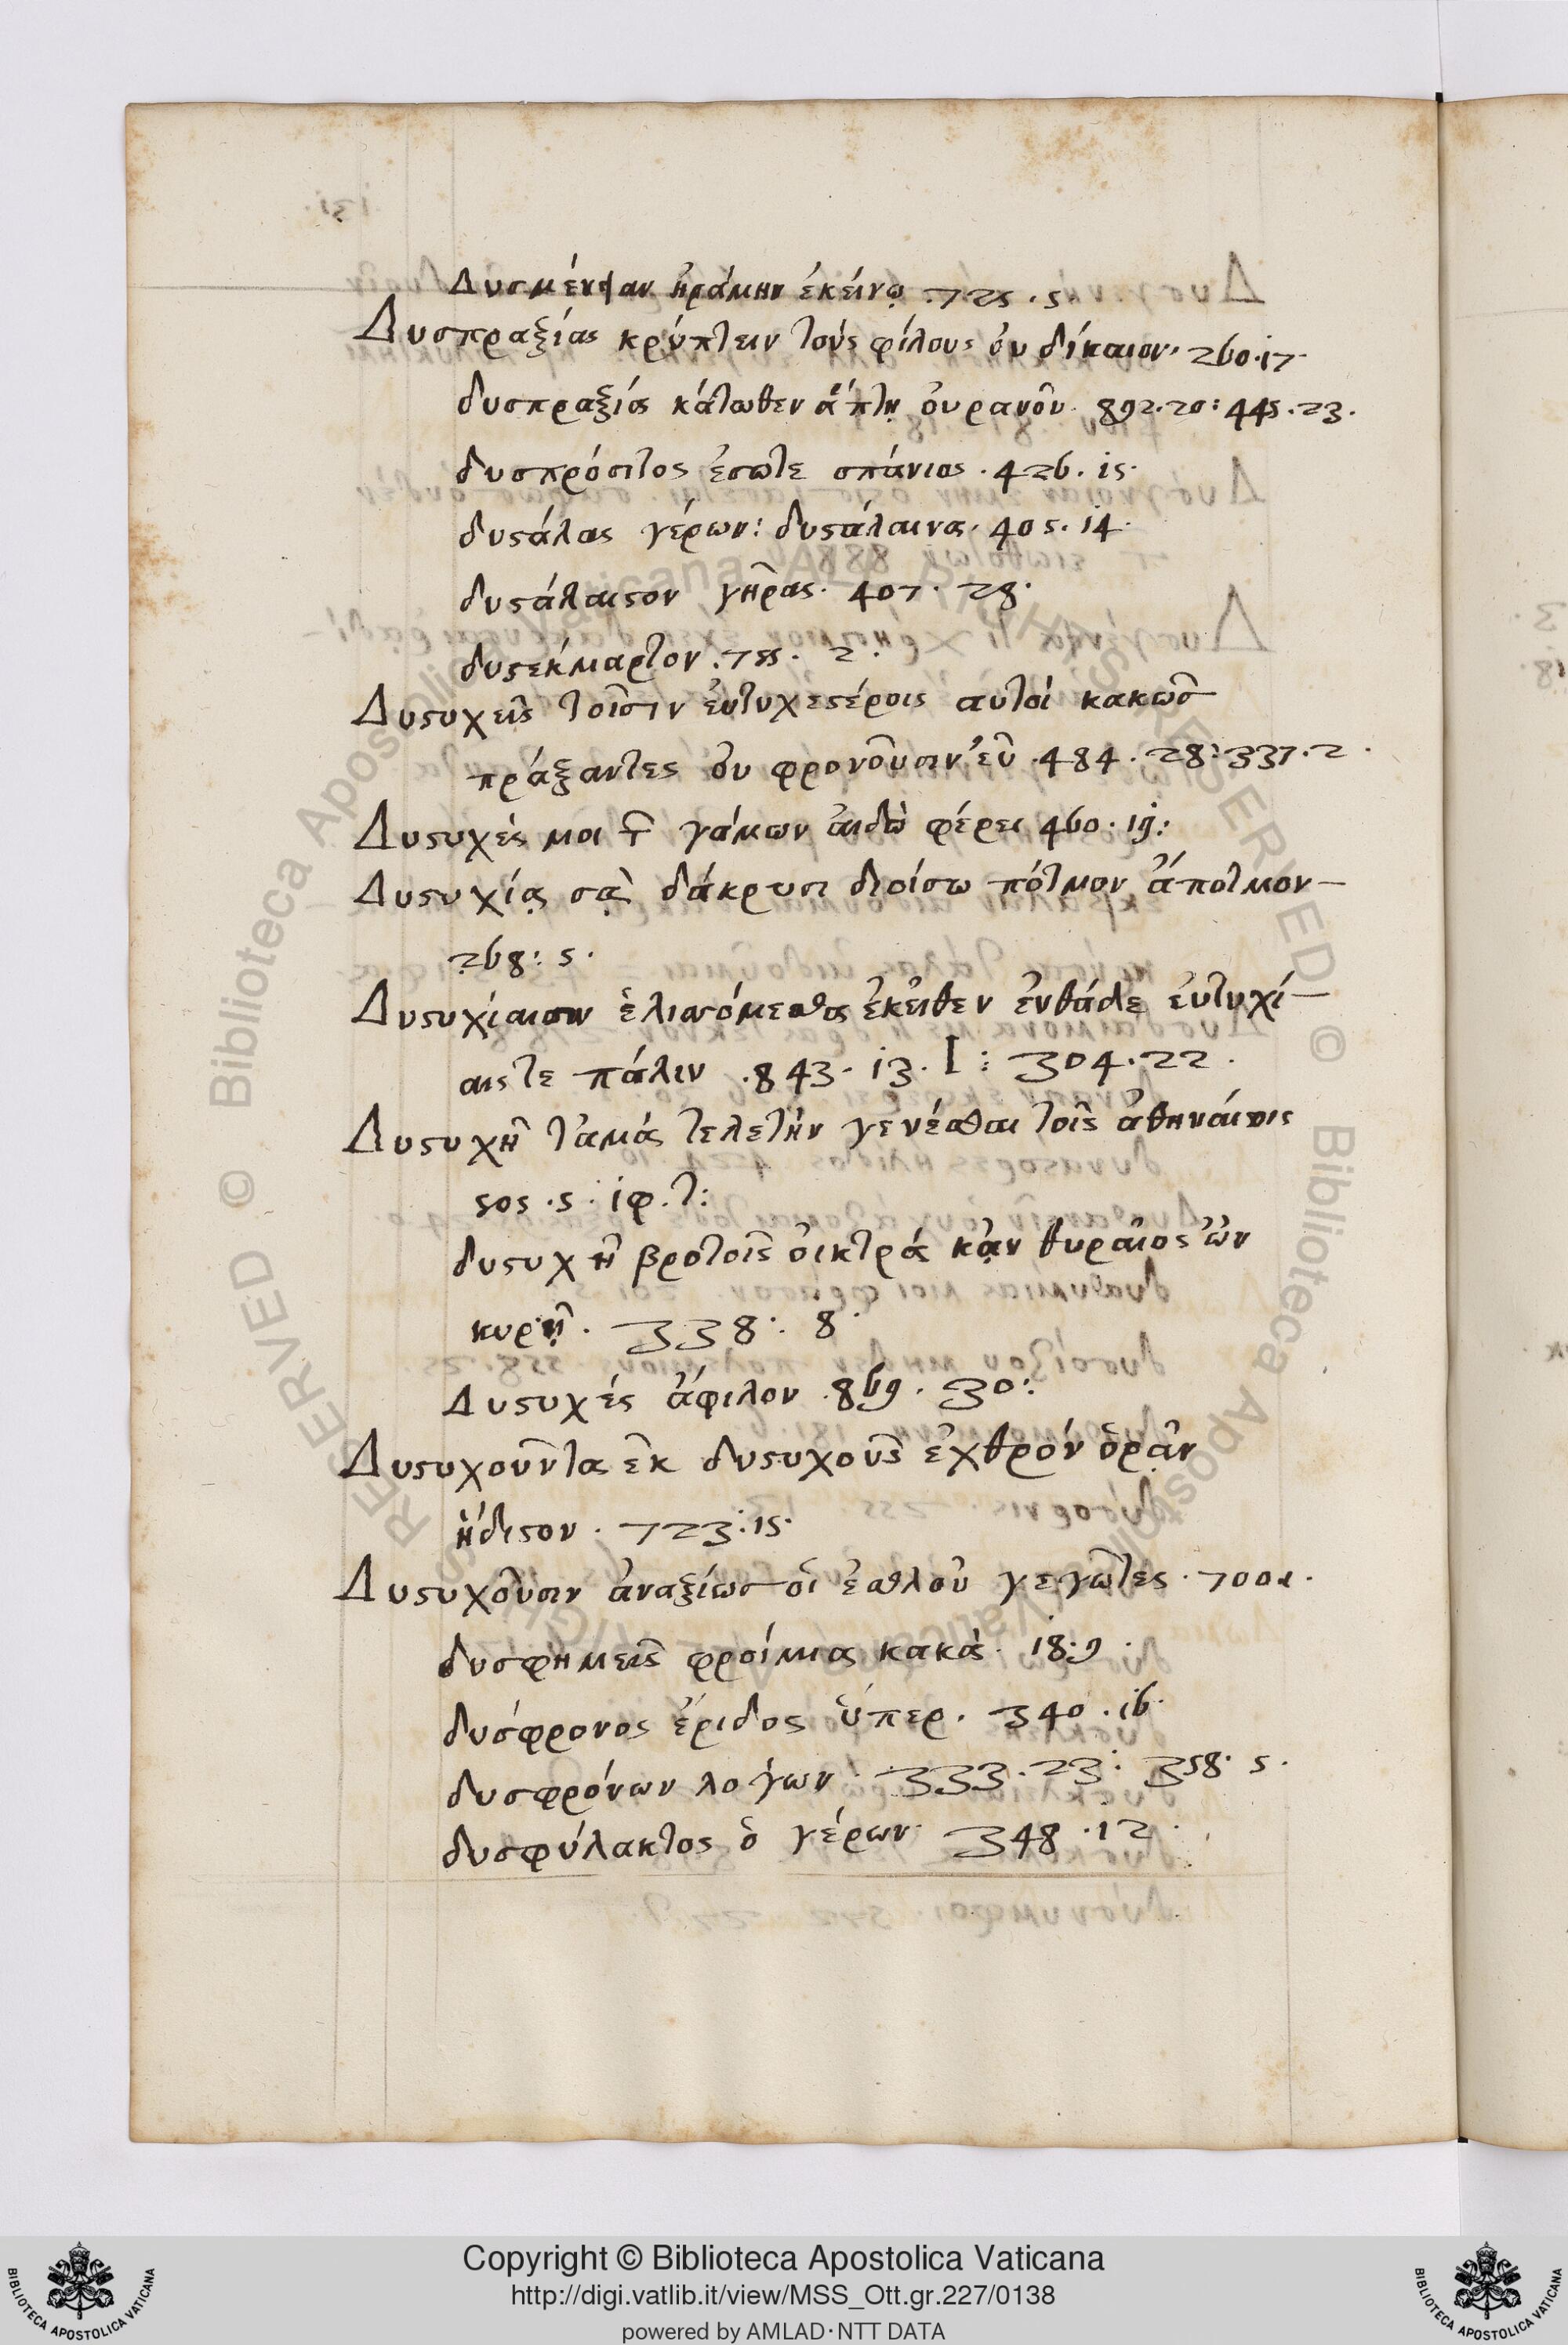 Δυσμένειαν ἠράμην ἐκείνῳ .725.5
Δυσπραξίας κρύπτειν τοὺς φίλους οὐ δίκαιον. 260.17.
δυσπραξία κάτωθεν ἅπτῃ οὐρανοῦ. 892.20: 445.23.
δυσπρόσιτος ἔσωτε σπάνιος .426. 15.
δυςάλας γέρων: δυςάλαινα. 405. 14.
δυςάλαιςον γῆρας. 407. 28.
δυςέκμαρτον. 2.
Δυςυχεῖς τοῖσιν εὐτυχεςέροις αὐτοὶ κακῶς
πράξαντες οὐ φρονοῦσιν εὖ .484. 28: 337. 2.
Δυςυχές μοι γάμων αἰδὼ φέρει 460. 19:
Δυςυχίᾳ σᾷ δάκρυσι διοίσω πότμον ἄποτμον
268: 5.
Δυςυχίαισιν ἑλισσόμεσθα ἐκεῖθεν ἐνθάδε εὐτυχί
αις τε πάλιν .843. 13. I: 304. 22.
Δυςυχῆ τἀμά τελετὴν γενέσθαι τοῖς ἀθηναίοις
505. 5. ἰφ. τ:
δυςυχῆ βροτοῖς οἰκτρά κἂν θυραῖος ὢν
κυρῇ. 338: 8.
Δυςυχές ἄφιλον .869. 30:
Δυςυχοῦντα ἐκ δυςυχοῦς ἐχθρόν ὁρᾶν
ἥδιςον. 723: 15.
Δυςυχοῦσιν ἀναξίως οἱ ἐσθλοῦ γεγῶτες. 700
δυσφημεῖς φροίμια κακά. 18.9.
δύσφρονος ἔριδος ὕπερ. 340. 16.
δυσφρόνων λόγων. 333. 23: 358. 5.
δυσφύλακτος ὁ γέρων. 348. 12.
Copyright © Biblioteca Apostolica Vaticana
http://digi.vatlib.it/view/MSS_Ott.gr.227/0138
powered by AMLAD·NTT DATA